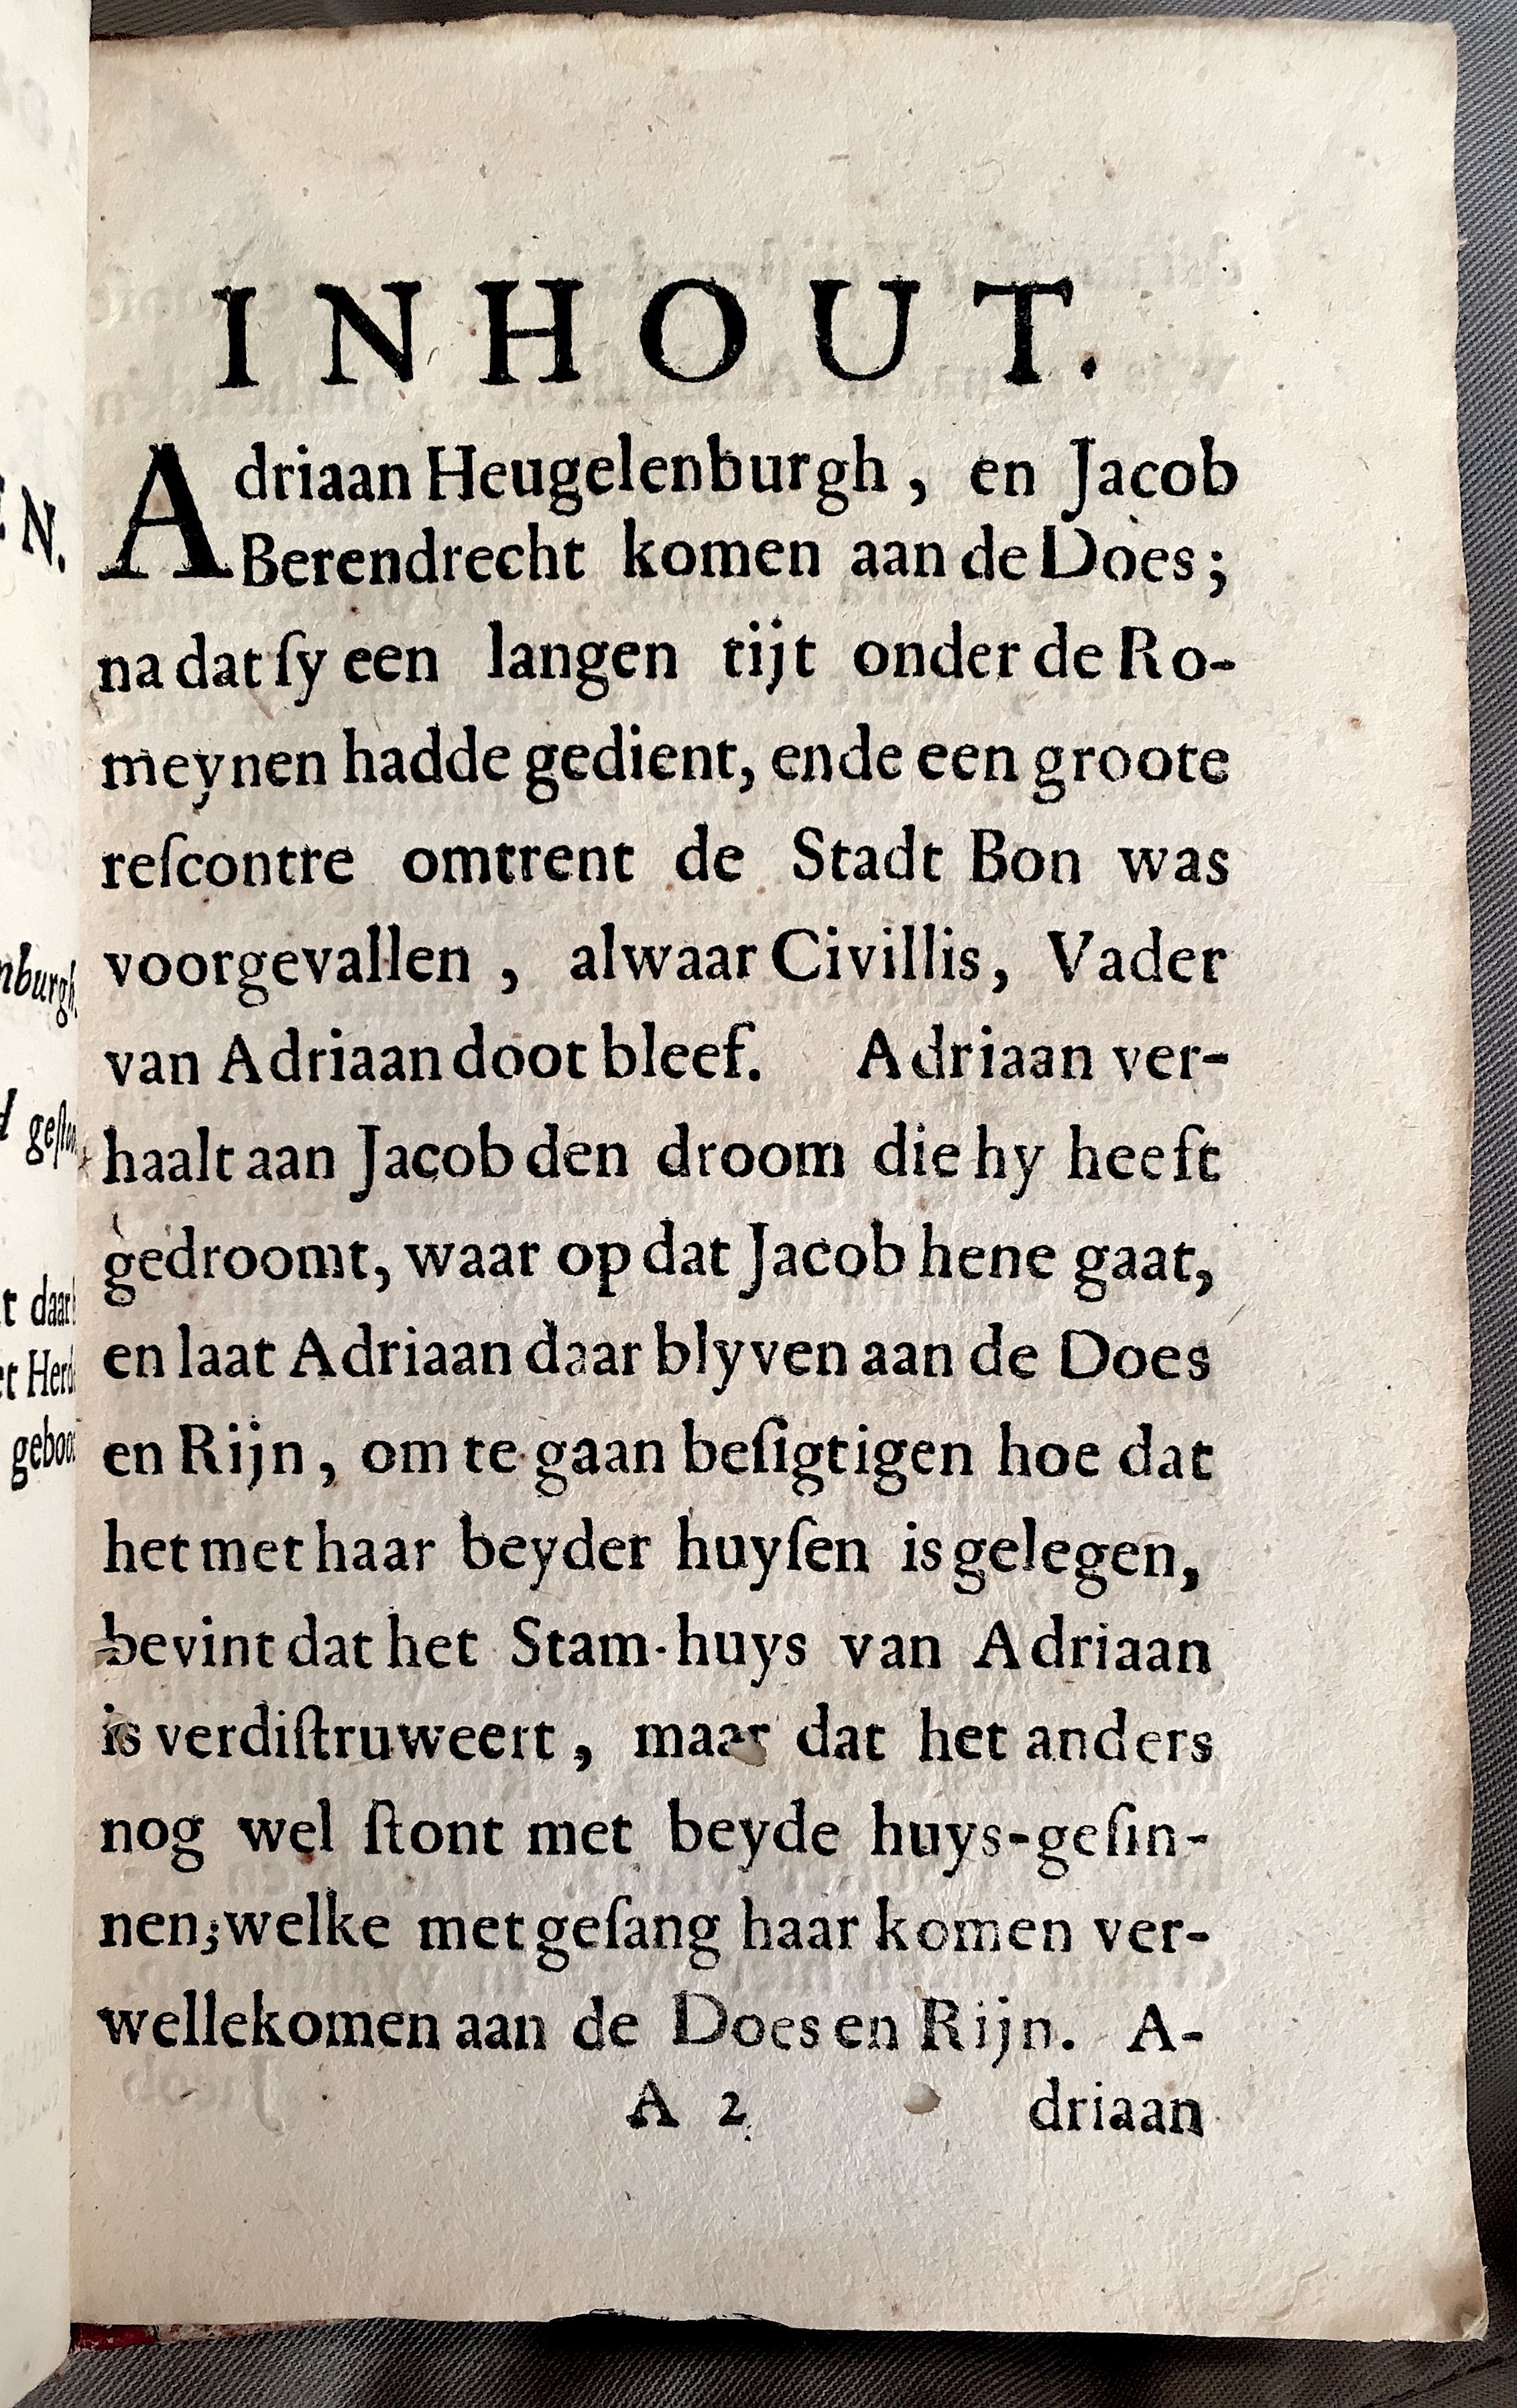 INHOUT.
Adriaan Heugelenburgh, en Jacob
Berendrecht komen aan de Does;
na dat ſy een langen tijt onder de Ro-
meynen hadde gedient, ende een groote
reſcontre omtrent de Stadt Bon was
voorgevallen, alwaar Civillis, Vader
van Adriaan doot bleef. Adriaan ver-
haalt aan Jacob den droom die hy heeft
gedroomt, waar op dat Jacob hene gaat,
en laat Adriaan daar blyven aan de Does
en Rijn, om te gaan beſigtigen hoe dat
het met haar beyder huyſen is gelegen,
bevint dat het Stam-huys van Adriaan
is verdiſtruweert, maar dat het anders
nog wel ſtont met beyde huys-geſin-
nen; welke met geſang haar komen ver-
wellekomen aan de Does en Rijn. A-
A 2 driaan